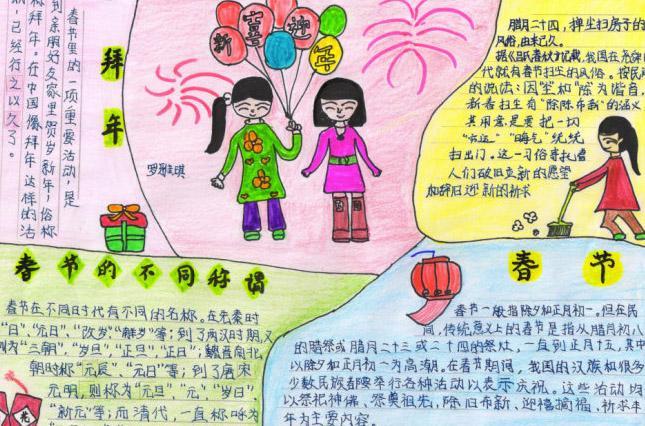 拜年
春节里的一项重要活动,是
到亲朋好友家里贺岁新年,俗称
拜年。在中国像拜年这样的活
,已经行之以久了。
新喜迎年
腊月二十四,掸尘扫房子的
风俗,由来已久。
据《吕氏春秋》记载,我国在尧舜
代就有春节扫尘的风俗。按民
的说法:因“尘”和“陈”为谐音,
新春扫尘有“除陈布新”的涵义
其用意是要把一切
“穷运”“晦气”统统
扫出门。这一习俗寄托着
人们破旧立新的愿望
和辞旧迎新的祈求
春节的不同称谓
春节在不同时代有不同的名称。在先秦时
“日”,“元日”,“改岁”“献岁”等;到了两汉时期又
为“三朝”,“岁旦”,“正旦”,“正日”;魏晋南北
朝时称“元辰”,“元日”等;到了唐宋
元明,则称为“元旦”,“元”,“岁日”,
“新元”等;而清代,一直称呼为
春节
春节一般指除夕和正月初一。但在民
间,传统意义上的春节是指从腊月初八
的腊祭或腊月二十三或二十四的祭灶,一直到正月十五,其中
以除夕和正月初一为高潮。在春节期间,我国的汉族和很多
少数民族都要举行各种活动以表示庆祝。这些活动均
以祭祀神佛、祭奠祖先、除旧布新、迎禧接福、祈求丰
年为主要内容。